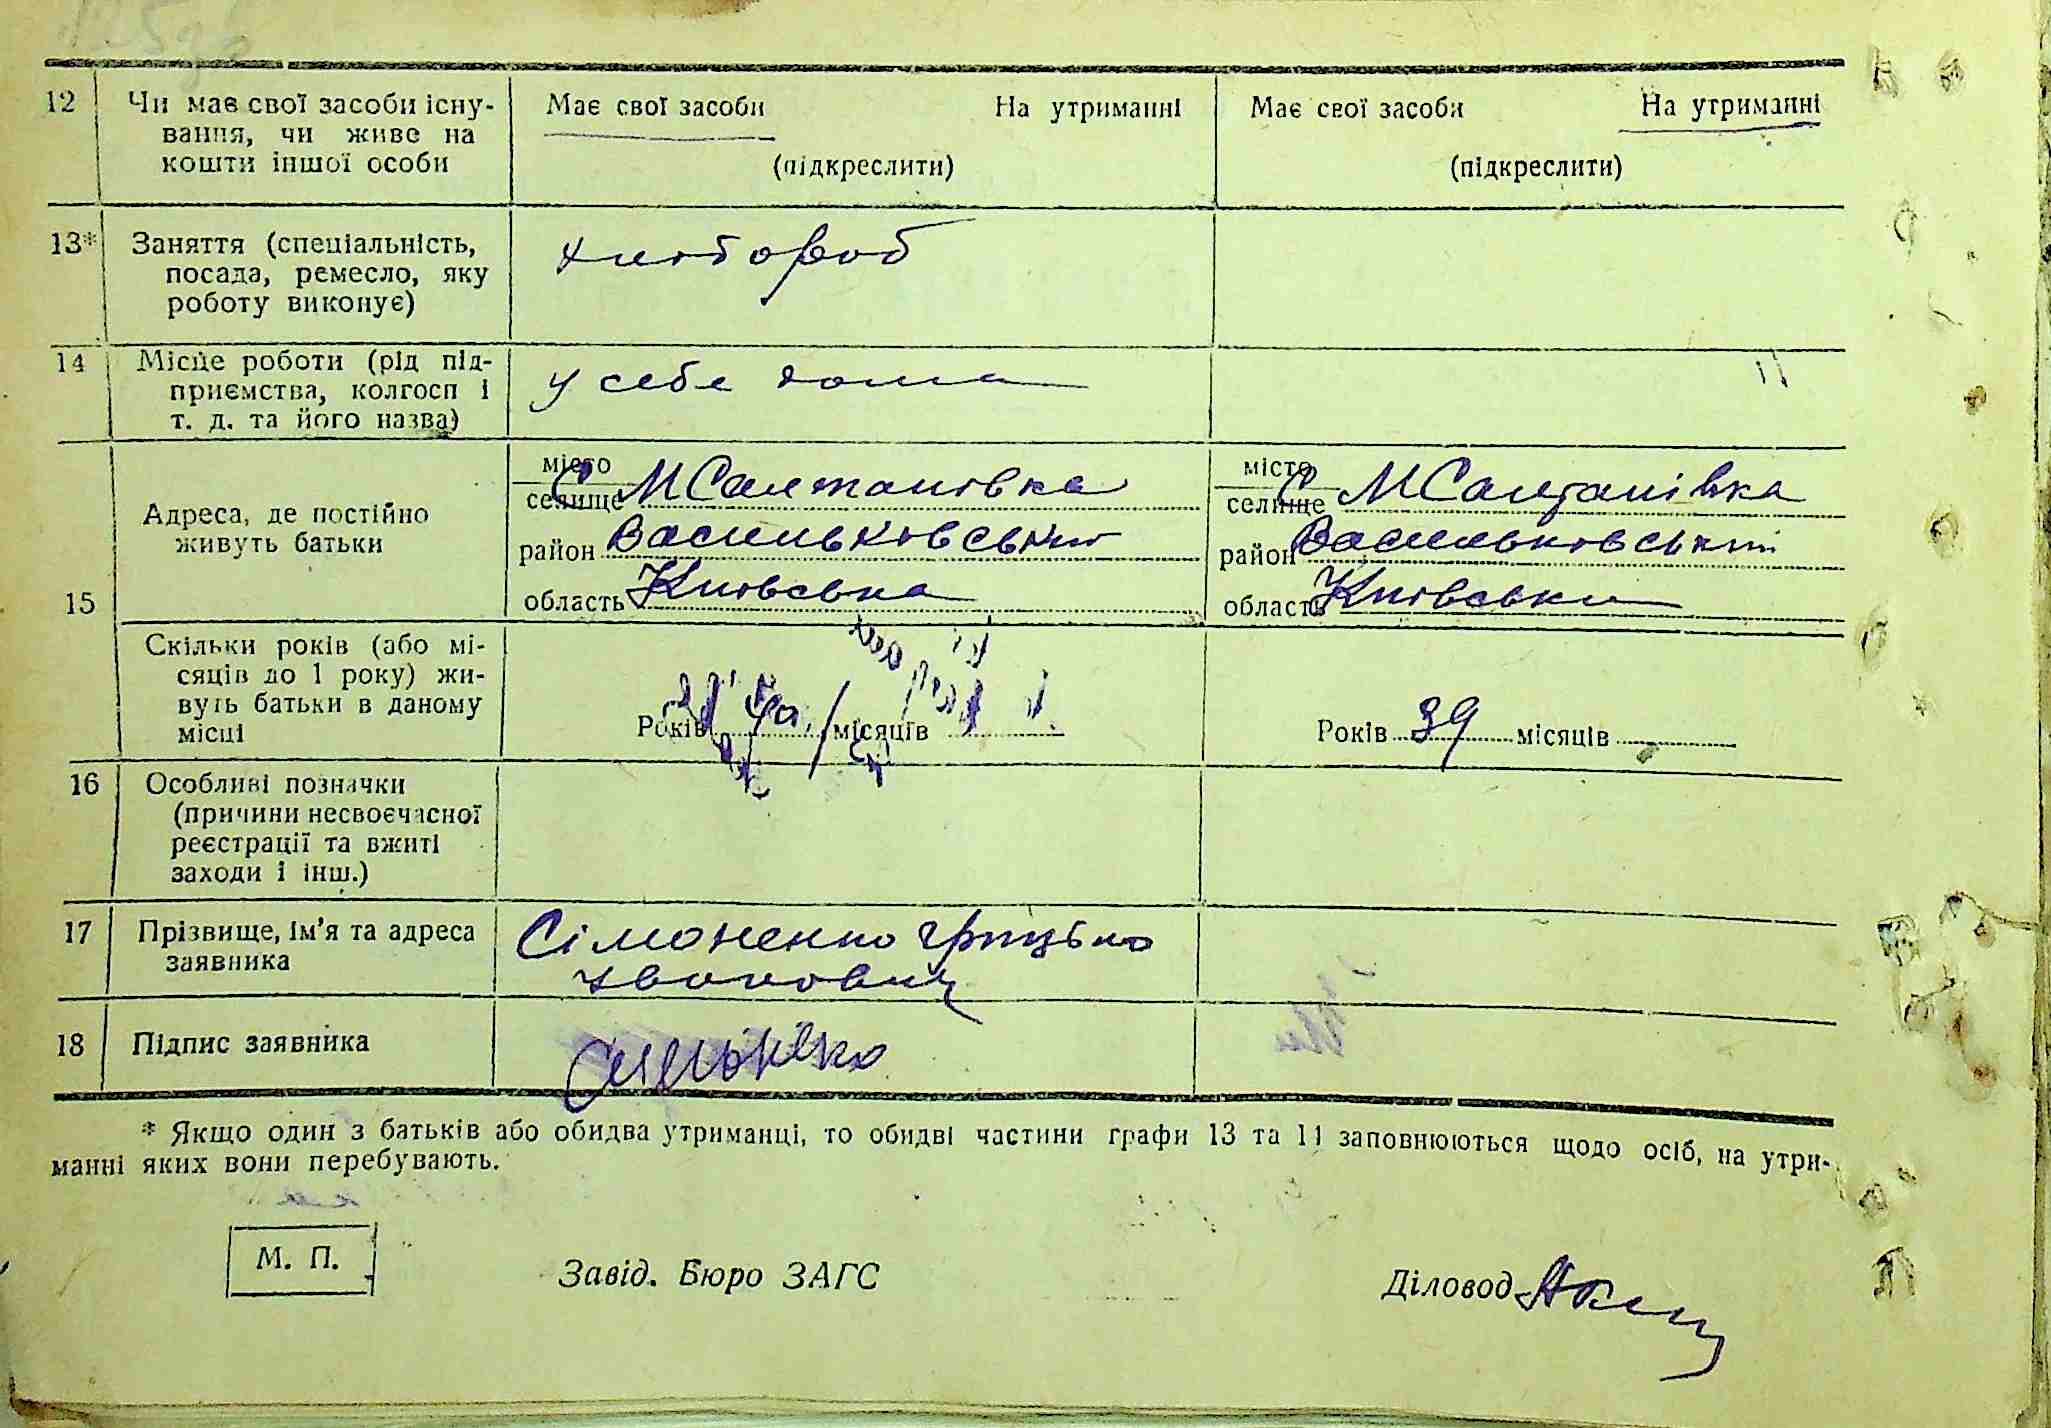 12 Чи має свої засоби існу-
вання, чи живе на
кошти іншої особи
Має свої засоби На утриманні
(підкреслити)
Має свої засоби На утриманні
(підкреслити)
13* Заняття (спеціальність,
посада, ремесло, яку
роботу виконує)
хлібороб
14 Місце роботи (рід під-
приємства, колгосп і
т. д. та його назва)
у себе дома
15
Адреса, де постійно
живуть батьки
місто
селище С МСалтановка
район Васильковський
область Київська
місто
селище С МСалтанівка
район Васильковський
область Київська
Скільки років (або мі-
сяців до 1 року) жи-
вуть батьки в даному
місці
Років 40 місяців
Років 39 місяців
16 Особливі позначки
(причини несвоєчасної
реєстрації та вжиті
заходи і інш.)
17 Прізвище, ім'я та адреса
заявника
Сімоненко Грицько
Іванович
18 Підпис заявника
* Якщо один з батьків або обидва утриманці, то обидві частини графи 13 та 11 заповнюються щодо осіб, на утри-
манні яких вони перебувають.
М. П.
Завід. Бюро ЗАГС
Діловод